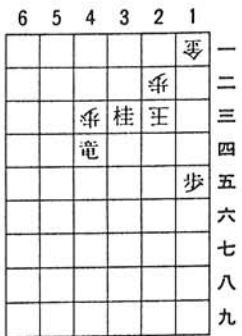 6 5 4 3 2 1
金 一
歩 二
歩 桂 王 三
竜 四
歩 五
六
七
八
九